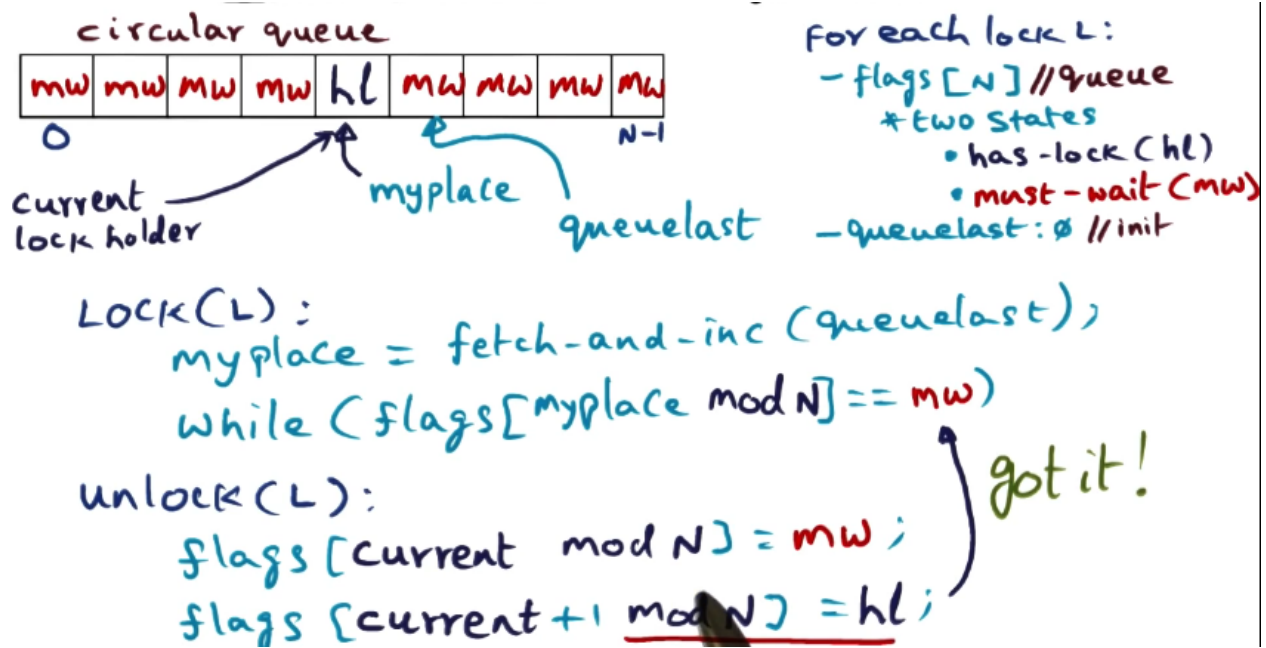 circular queue
mw mw mw mw hl mw mw mw mw
0 N-1
current
lock holder
myplace
queuelast
For each lock L:
- flags [N] //queue
* two states
• has-lock (hl)
• must-wait (mw)
- queuelast: ∅ //init
LOCK(L):
myplace = fetch-and-inc (queuelast);
while (flags[myplace mod N] == mw)
unlock(L):
flags [current mod N] = mw;
flags [current +1 mod N] = hl;
got it!